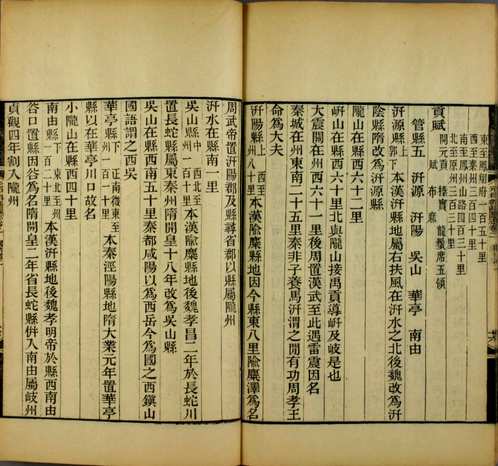 東至鳳翔府一百五十里
貢賦
開元貢 榛實 龍鬚席五領
賦 布麻
管縣五 汧源 汧陽 吳山 華亭 南由
汧源縣 郭下 本漢汧縣地屬右扶風在汧水之北後魏改為汧
陰縣隋改為汧源縣
隴山在縣西六十二里
岍山在縣西六十里北與隴山接禹貢導岍及岐是也
大震關在州西六十一里後周置漢武至此遇雷震因名
秦城在州東南二十五里秦非子養馬汧渭之間有功周孝王
命為大夫
汧陽縣 上 西至州八十里 本漢隃麋縣地因今縣東八里隃麋澤為名
周武帝置汧陽郡及縣尋省郡以縣屬隴州
汧水在縣南一里
吳山縣 中 西北至州一百一十里 本漢隃麋縣地後魏孝昌二年於長蛇川
置長蛇縣屬東秦州隋開皇十八年改為吳山縣
吳山在縣西南五十里秦都咸陽以為西岳今為國之西鎮山
國語謂之西吳
華亭縣 下 正南微東至州一百一十里 本秦涇陽縣地隋大業元年置華亭
縣以在華亭川口故名
小隴山在縣西四十里
南由縣 下 東北至州一百二十里 本漢汧縣地後魏孝明帝於縣西南由
谷口置縣因谷為名隋開皇二年省長蛇縣併入南由屬岐州
貞觀四年割入隴州